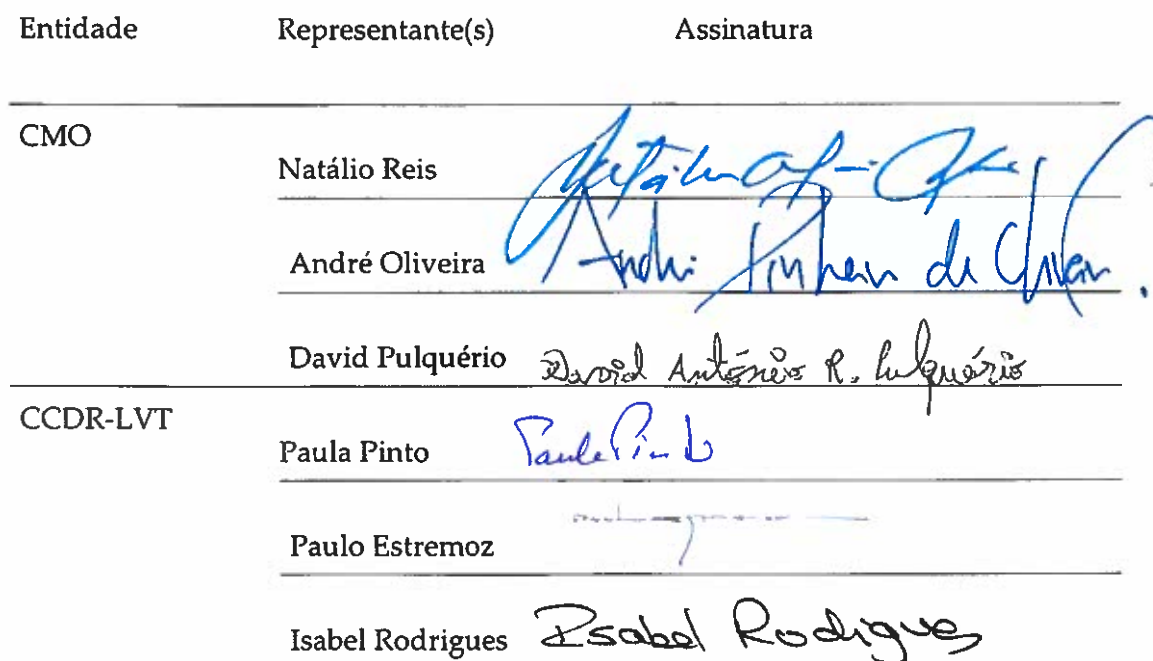 Entidade Representante(s) Assinatura
CMO
Natálio Reis
André Oliveira André Pinheiro de Oliveira
David Pulquério David António R. Pulquério
CCDR-LVT
Paula Pinto Paula Pinto
Paulo Estremoz
Isabel Rodrigues Isabel Rodrigues